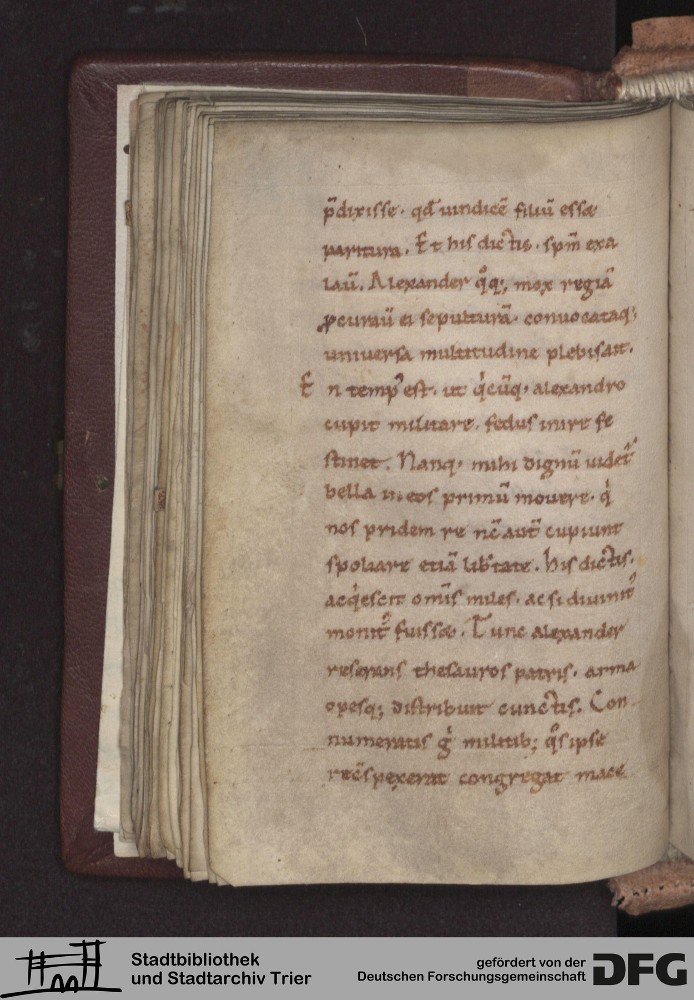 p̄dixisse · qđ uindicē filiū esse
paritura. Et his dictis · spm̄ exa
lauī. Alexander qͦq; mox regiā
ꝓcurauī ei sepulturā · conuocataq;
uniuersa multitudine plebis ait.
E n temp᷒ est · ut qͥcūq· alexandro
cupit militare · fedus inire fe
stinet. Nanq· mihi dignū uidet᷑
bella in eos primū mouere · qͥ
nos pridem re nc̄ aut̄ cupiunt
spoliare etiā lib̄tate. His dictis ·
acqͥescit omīs miles · ac si diuinit᷒
monit᷒ fuisset. Tunc alexander
reserans thesauros patris · arma
opesq; distribuit cunctis. Con
numeratis gͦ militib; qͦs ipse
rec̄s pexerat congregat mace
Stadtbibliothek
und Stadtarchiv Trier
gefördert von der
Deutschen Forschungsgemeinschaft
DFG